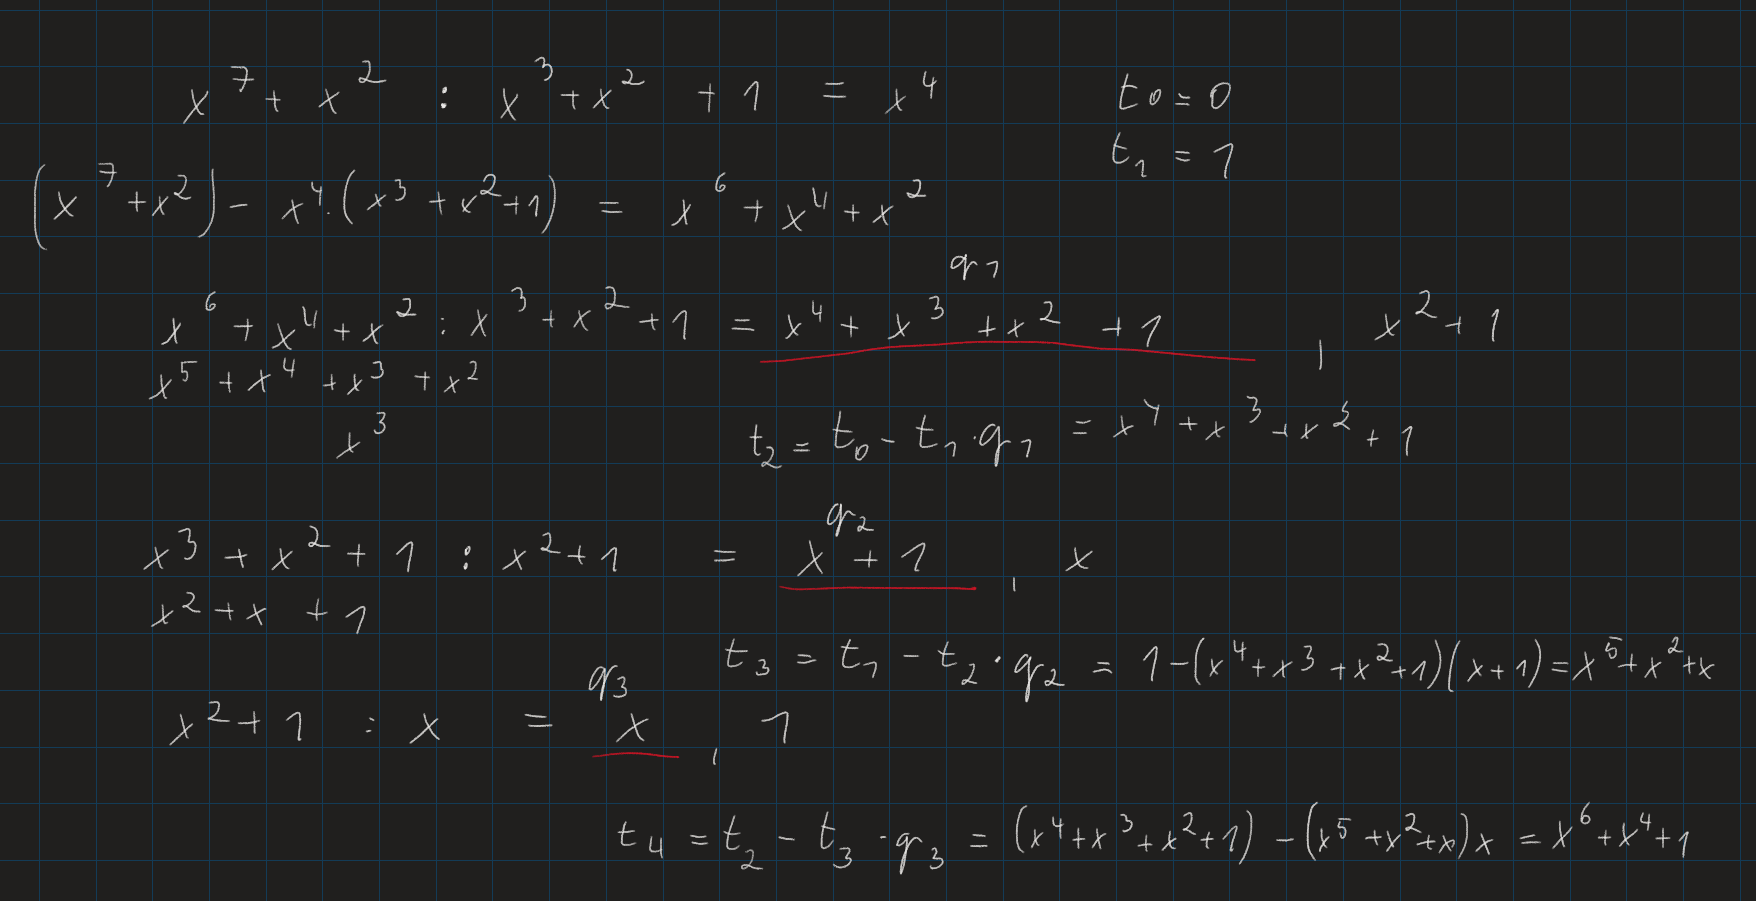 x^7 + x^2 : x^3 + x^2 + 1 = x^4
t_0 = 0
t_1 = 1
(x^7 + x^2) - x^4 · (x^3 + x^2 + 1) = x^6 + x^4 + x^2
q_1
x^6 + x^4 + x^2 : x^3 + x^2 + 1 = x^4 + x^3 + x^2 + 1 , x^2 + 1
x^5 + x^4 + x^3 + x^2
x^3
t_2 = t_0 - t_1 · q_1 = x^4 + x^3 + x^2 + 1
q_2
x^3 + x^2 + 1 : x^2 + 1 = x + 1 , x
x^2 + x + 1
t_3 = t_1 - t_2 · q_2 = 1 - (x^4 + x^3 + x^2 + 1)(x + 1) = x^5 + x^2 + x
q_3
x^2 + 1 : x = x , 1
t_4 = t_2 - t_3 · q_3 = (x^4 + x^3 + x^2 + 1) - (x^5 + x^2 + x)x = x^6 + x^4 + 1